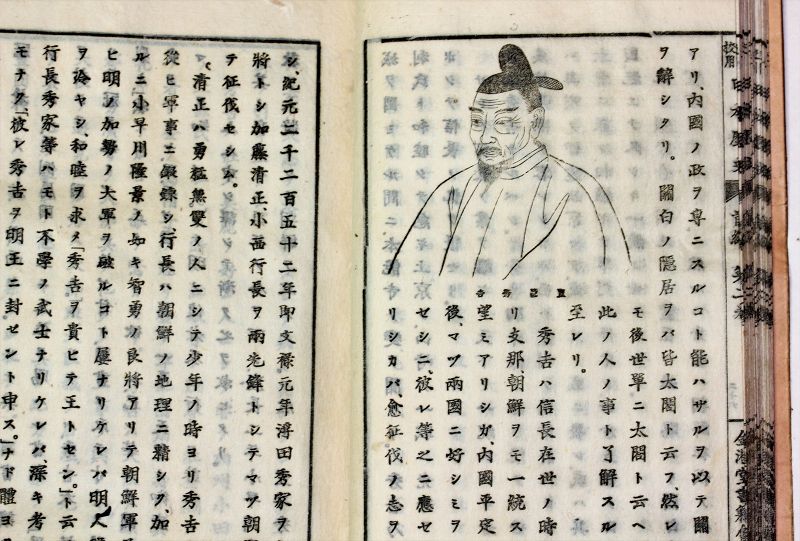 アリ、内國ノ政ヲ專ニスルコト能ハサルヲ以テ關
ヲ辭シタリ。關白ノ隱居ヲバ皆太閤ト云フ、然レ
モ後世單ニ太閤ト云ヘ
此ノ人ノ事ト了解スル
至レリ。
秀吉ハ信長在世ノ時
リ支那、朝鮮ヲモ一統ス
望ミアリシガ、内國平定
後、マヅ兩國ニ好シミヲ
セシニ、彼レ等之ニ應セ
リシカバ、愈征伐ノ志ヲ
豐臣秀吉
シ、紀元二千二百五十二年即文祿元年浮田秀家ヲ
將トシ加藤清正、小西行長ヲ兩先鋒トシテマヅ朝
テ征伐セシム。
清正ハ勇猛無雙ノ人ニシテ少年ノ時ヨリ秀吉
從ヒ軍事ニ鍛錬シ、行長ハ朝鮮ノ地理ニ精シク、加
ルニ小早川隆景ノ如キ智勇ノ良將アリテ朝鮮軍
ヒ明ノ加勢ノ大軍ヲ破ルコト屢ナリケレバ明人
ヲ冷ヤシ、和睦ヲ求メ「秀吉ヲ貴ビテ王トセン。」ト云
行長秀家等ハモト不學ノ武士ナリケレバ、深キ考
モナク、「彼レ秀吉ヲ明王ニ封ゼント申ス。」ナド體ヨ
校用
日本歴史
第二
金港堂書籍